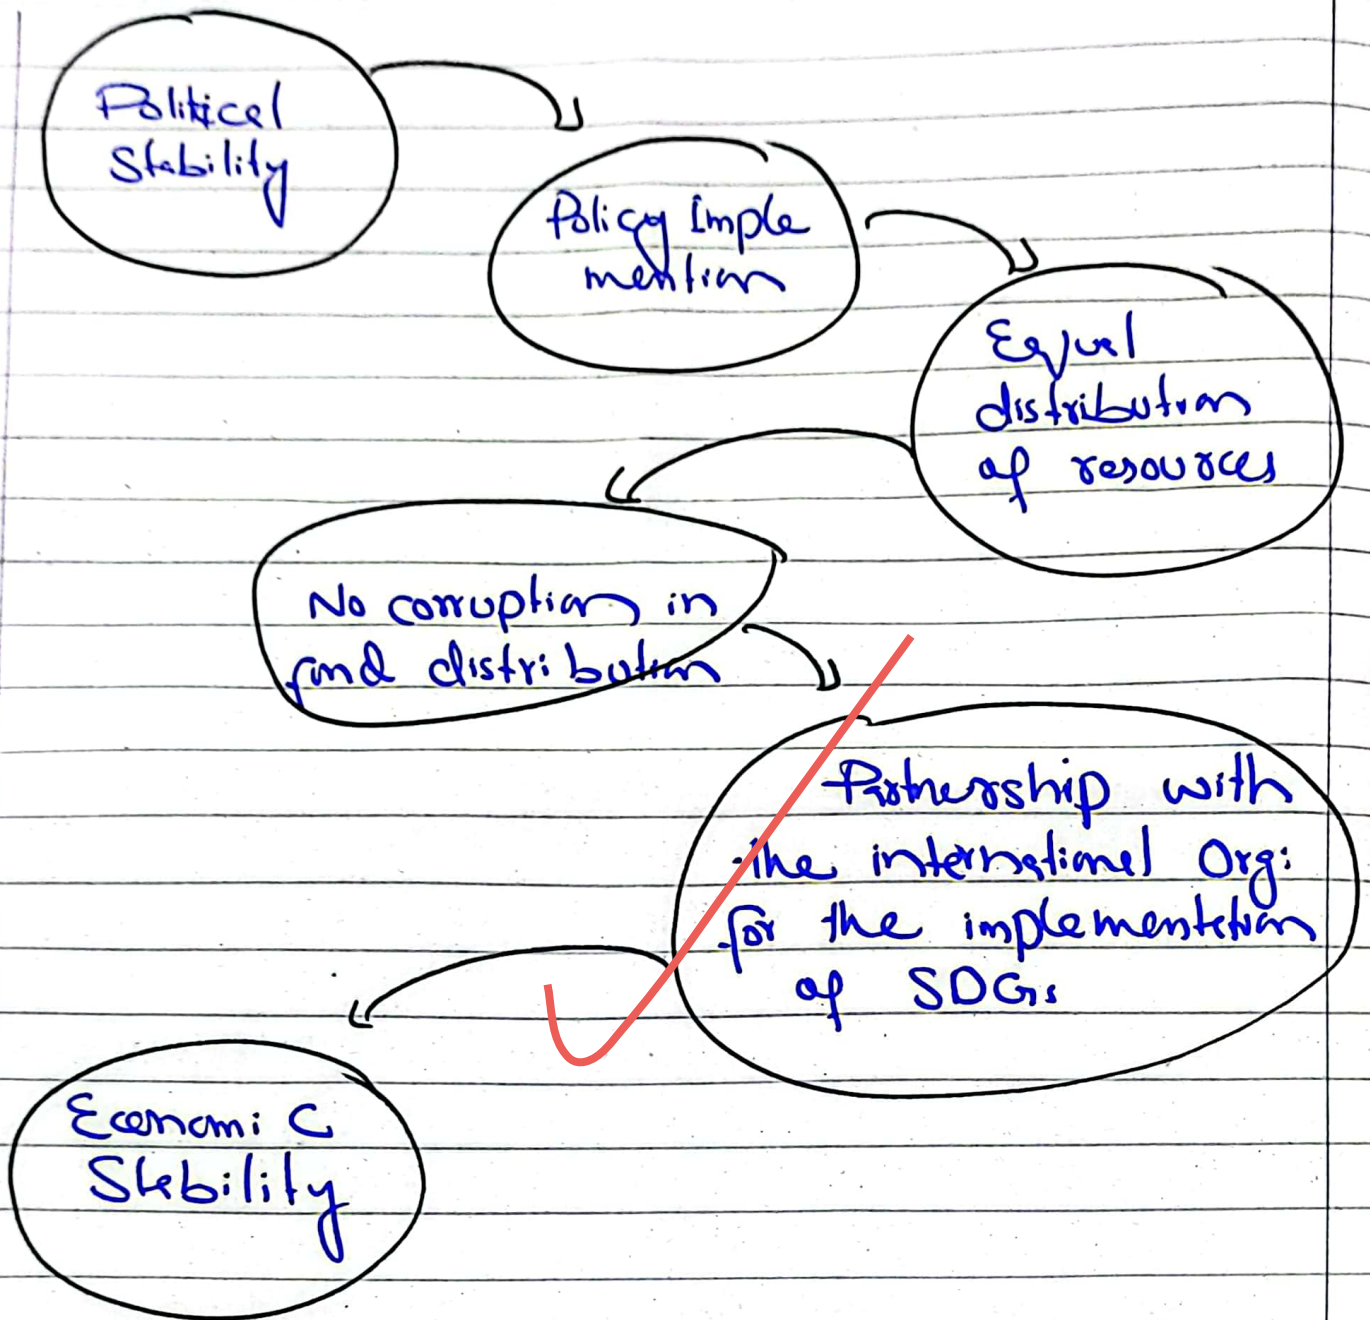 Political
Stability
Policy Imple
mention
Equal
distribution
of resources
No corruption in
fund distribution
Partnership with
the international Org:
for the implementation
of SDGs
Economic
Stability